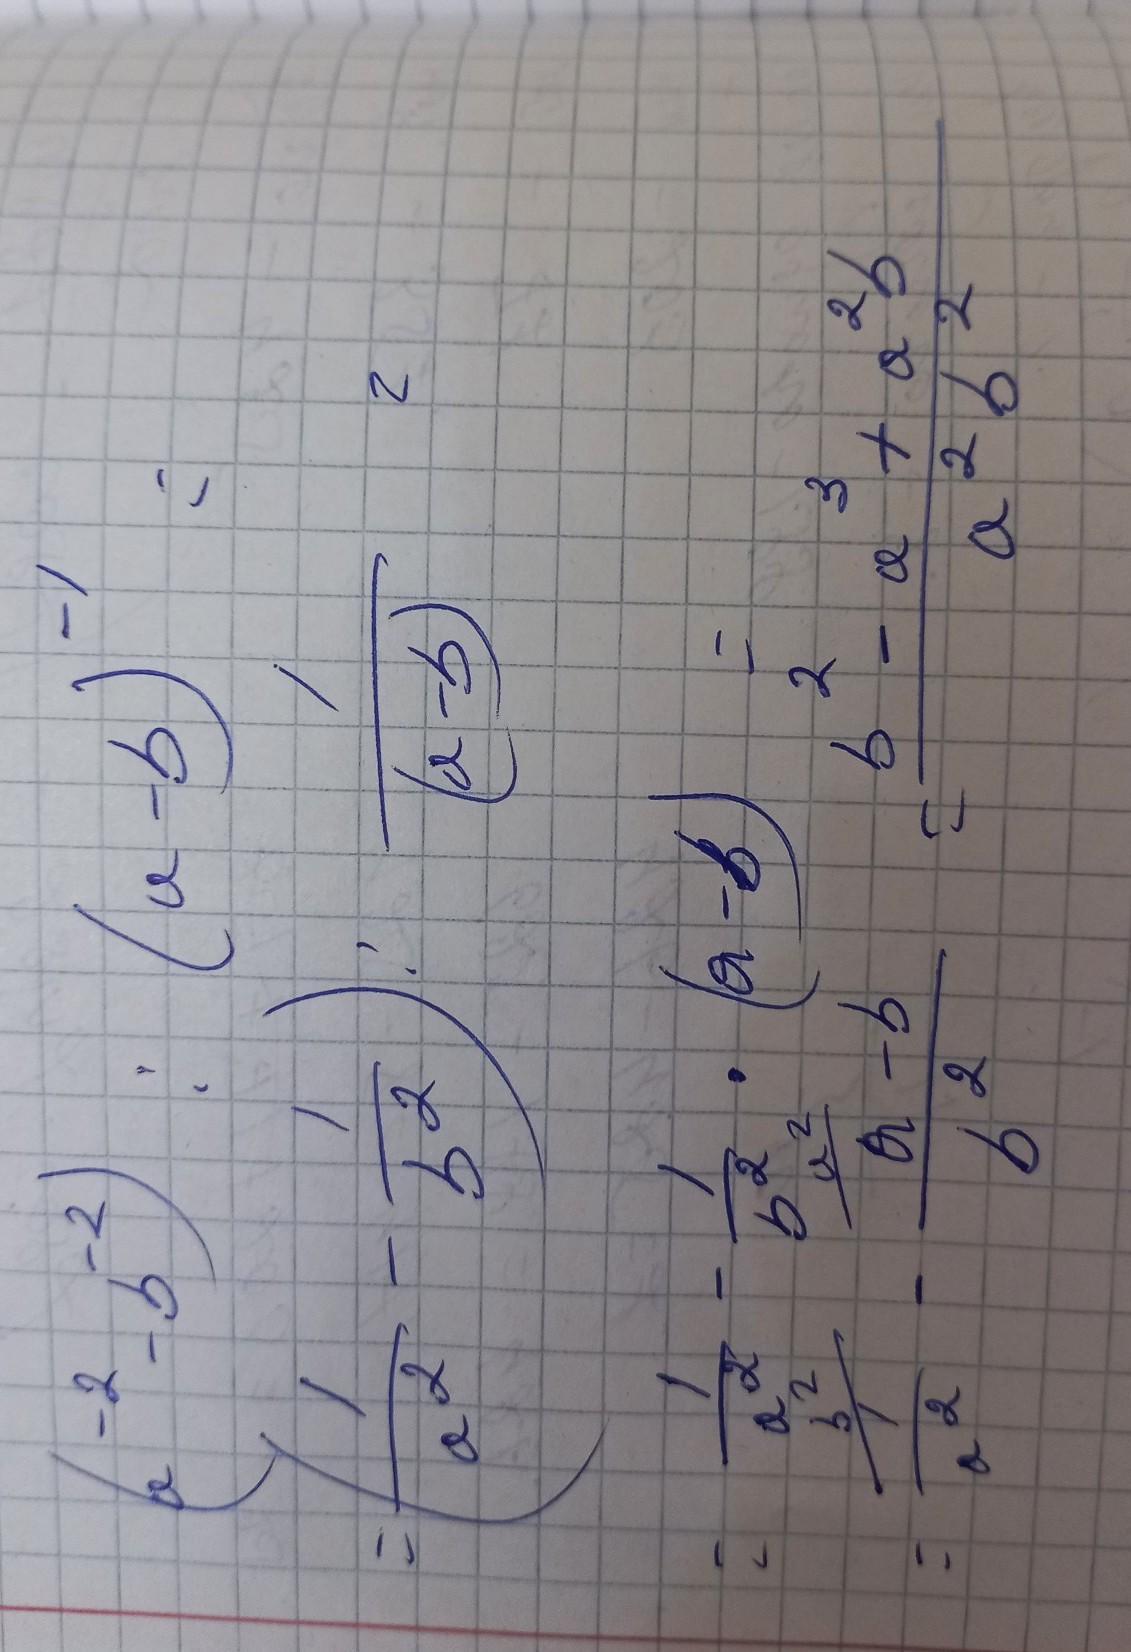 (a^-2 - b^-2) : (a-b)^-1 =
= (1/a^2 - 1/b^2) : 1/(a-b) =
= 1/a^2 - 1/b^2 · (a-b) =
b^2/ a^2/
= 1/a^2 - a-b/b^2 = b^2 - a^3 + a^2b/a^2b^2